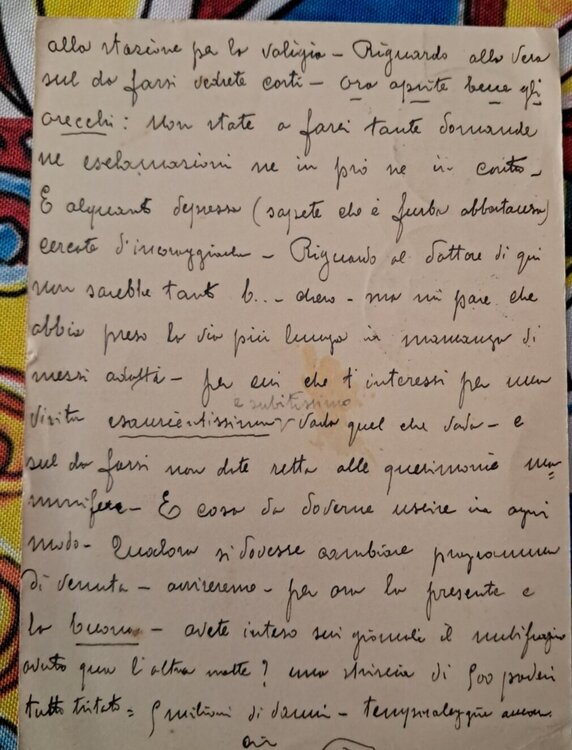 alla stazione per la valigia - Riguardo alla Vera
sul da farsi vedrete costì - ora aprite bene gli
orecchi: non state a farci tante domande
ne esclamazioni ne in pro ne in contro -
E alquanto depressa (sapete che è furba abbastanza)
cercate d'incoraggiarla - Riguardo al dottore di qui
non sarebbe tanto b... - ma mi pare che
abbia preso la via più lunga in mancanza di
mezzi adatti - per cui che t'interessi per una
e subitissimo
visita esaurientissima vada quel che vada - e
sul da farsi non date retta alle querimonie ma=
mmifere - E cosa da doverne uscire in ogni
modo - Qualora si dovesse cambiare programma
di venuta - avviseremo - per ora la presente e
la buona - avete inteso sui giornali il nubifragio
avuto qua l'altra notte? una striscia di 500 poderi
tutto tritato = 5 milioni di danni - ancora